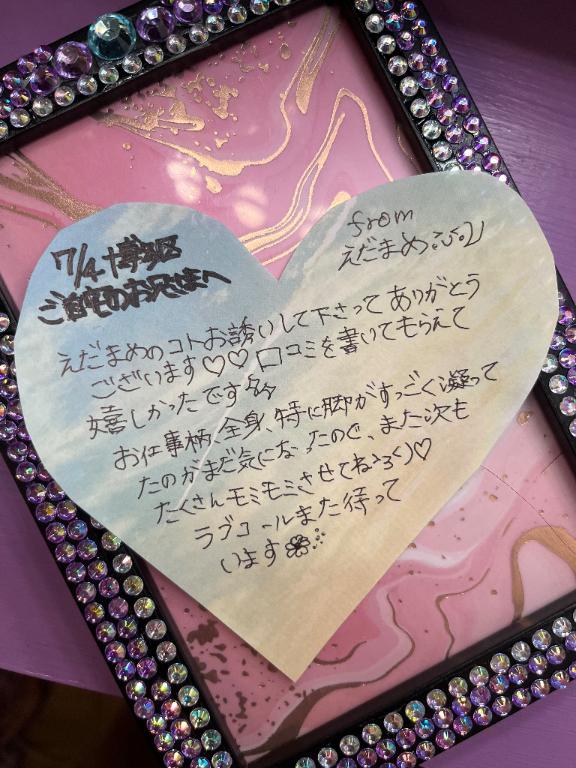 7/4 博多区
ご自宅のお兄さまへ
from
えだまめ
えだまめのコトお誘いして下さってありがとう
ございます♡♡ 口コミを書いてもらえて
嬉しかったです
お仕事柄、全身、特に脚がすっごく凝って
たのがまだ気になったので、また次も
たくさんモミモミさせてね
ラブコールまた待って
います